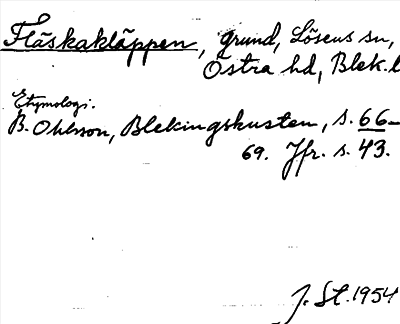 Fläskakläppen, grund, Lösens sn,
Östra hd, Blek.l
Etymologi.
B. Ohlsson, Blekingskusten, s. 66–
69. Jfr. s. 43.
J. St. 1954